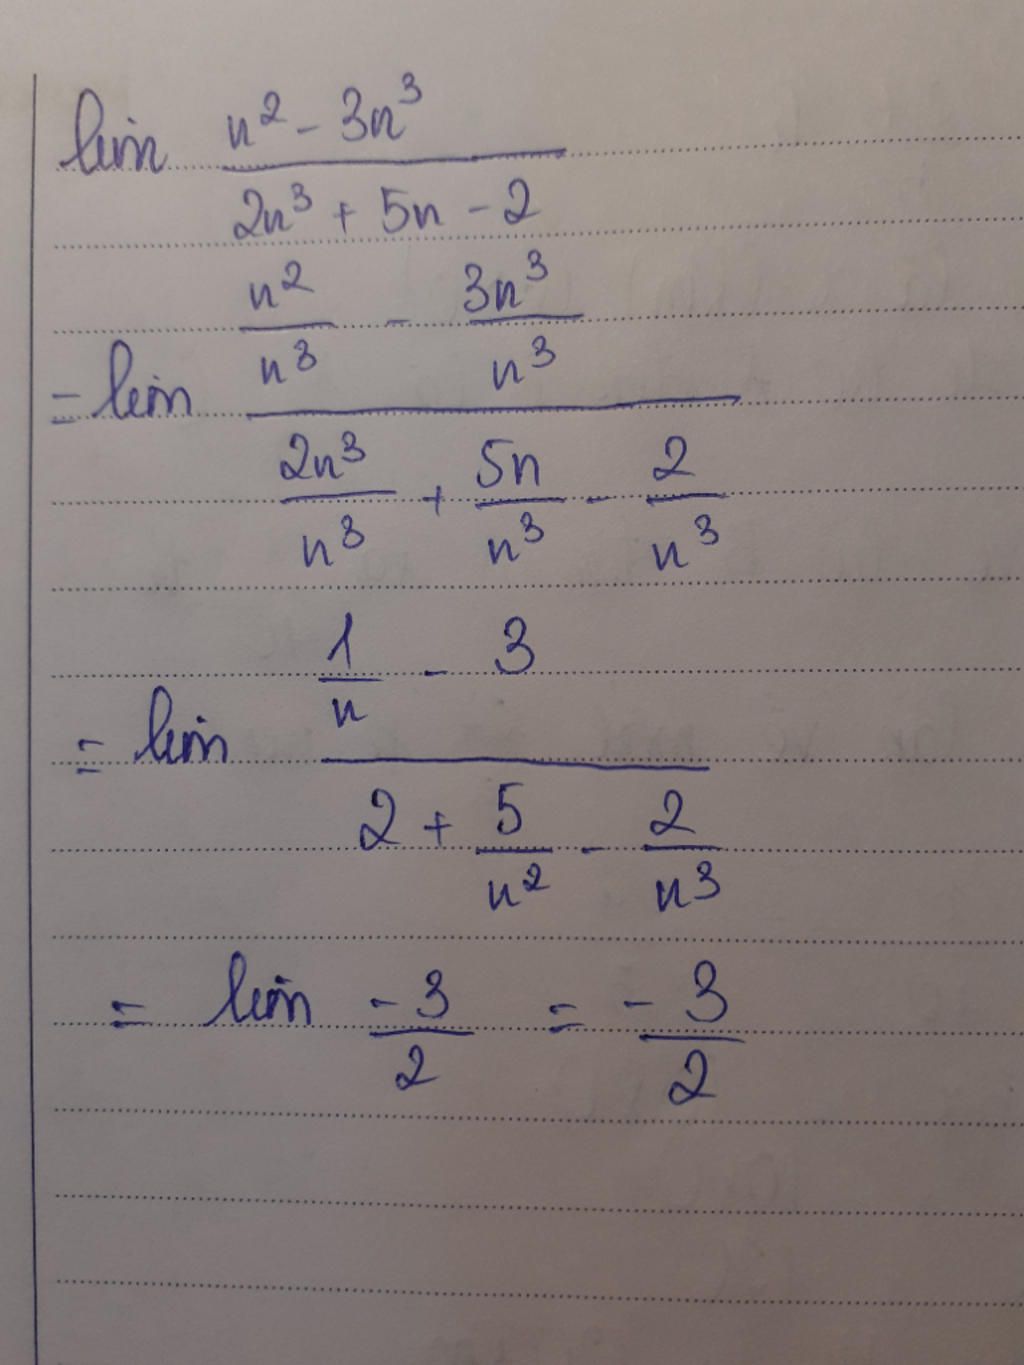 lim (n² - 3n³) / (2n³ + 5n - 2)
= lim (n²/n³ - 3n³/n³) / (2n³/n³ + 5n/n³ - 2/n³)
= lim (1/n - 3) / (2 + 5/n² - 2/n³)
= lim -3/2 = -3/2